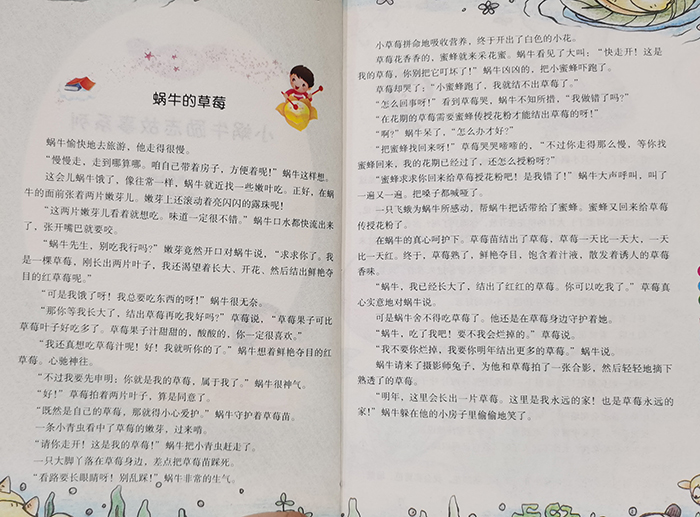 蜗牛的草莓
蜗牛愉快地去旅游,他走得很慢。
“慢慢走,走到哪算哪。咱自己带着房子,方便着呢!”蜗牛这样想。
这会儿蜗牛饿了,像往常一样,蜗牛就近找一些嫩叶吃。正好,在蜗
牛的面前张着两片嫩芽儿。嫩芽上还滚动着亮闪闪的露珠呢!
“这两片嫩芽儿看着就想吃。味道一定很不错。”蜗牛口水都快流出来
了,张开嘴巴就要咬。
“蜗牛先生,别吃我行吗?”嫩芽竟然开口对蜗牛说,“求求你了。我
是一棵草莓,刚长出两片叶子,我还渴望着长大、开花、然后结出鲜艳夺
目的红草莓呢。”
“可是我饿了呀!我总要吃东西的呀!”蜗牛很无奈。
“那你等我长大了,结出草莓再吃我好吗?”草莓说,“草莓果子可比
草莓叶子好吃多了。草莓果子汁甜甜的,酸酸的,你一定很喜欢。”
“我还真想吃草莓汁呢!好!我就听你的了。”蜗牛想着鲜艳夺目的红
草莓。心驰神往。
“不过我要先申明:你就是我的草莓,属于我了。”蜗牛很神气。
“好!”草莓拍着两片叶子,算是同意了。
“既然是自己的草莓,那就得小心爱护。”蜗牛守护着草莓苗。
一条小青虫看中了草莓的嫩芽,过来啃。
“请你走开!这是我的草莓!”蜗牛把小青虫赶走了。
一只大脚丫落在草莓身边,差点把草莓苗踩死。
“看路要长眼睛呀!别乱踩!”蜗牛非常的生气。
小草莓拼命地吸收营养,终于开出了白色的小花。
草莓花香香的,蜜蜂就来采花蜜。蜗牛看见了大叫:“快走开!这是
我的草莓,你别把它叮坏了!”蜗牛凶凶的,把小蜜蜂吓跑了。
草莓却哭了:“小蜜蜂跑了,我就结不出草莓了。”
“怎么回事呀!”看到草莓哭,蜗牛不知所措,“我做错了吗?”
“在花期的草莓需要蜜蜂传授花粉才能结出草莓的呀!”
“啊?”蜗牛呆了,“怎么办才好?”
“把蜜蜂找回来呀!”草莓哭哭啼啼的,“不过你走得那么慢,等你找
蜜蜂回来,我的花期已经过了,还怎么授粉呀?”
“蜜蜂求求你回来给草莓传授花粉吧!是我错了!”蜗牛大声呼叫,叫了
一遍又一遍。把嗓子都喊哑了。
一只飞蛾为蜗牛所感动,帮蜗牛把话带给了蜜蜂。蜜蜂又回来给草莓
传授花粉了。
在蜗牛的真心呵护下。草莓苗结出了草莓,草莓一天比一天大,一天
比一天红。终于,草莓熟了,鲜艳夺目,饱含着汁液,散发着诱人的草莓
香味。
“蜗牛,我已经长大了,结出了红红的草莓。你可以吃我了。”草莓真
心实意地对蜗牛说。
可是蜗牛舍不得吃草莓了。他还是在草莓身边守护着她。
“蜗牛,吃了我吧!要不我会烂掉的。”草莓说。
“我不要你烂掉,我要你明年结出更多的草莓。”蜗牛说。
蜗牛请来了摄影师兔子,为他和草莓拍了一张合影,然后轻轻地摘下
熟透了的草莓。
“明年,这里会长出一片草莓。这里是我永远的家!也是草莓永远的
家!”蜗牛躲在他的小房子里偷偷地笑了。